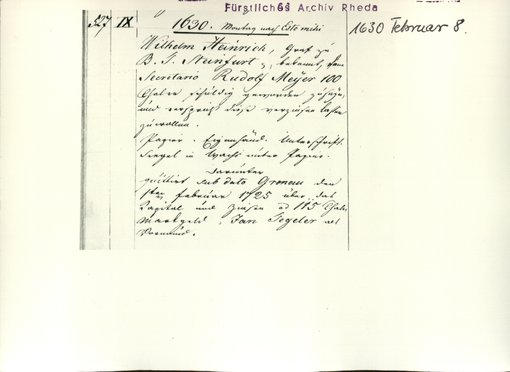 Fürstliches Archiv Rheda
1630 Februar 8.
527 IX 1630. Montag nach Esto mihi
Wilhelm Heinrich, Graf zu
B. T. Steinfurt, bekennt, dem
Secretario Rudolf Meyer 100
Thaler schuldig geworden zu sein,
und verspricht diese verzinsen lassen
zu wollen.
Papier. Eigenhänd. Unterschrift.
Siegel in Wachs unter Papier.
Darunter
quittiert sub dato Gronau den
Februar 1725 über das
Capital und Zinsen ad 115 Thaler
Markgeld, Jan Tegeler als
Vormund.